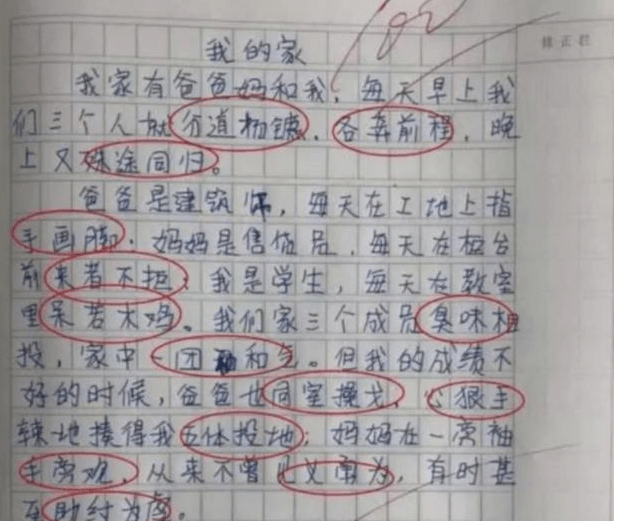 我的家
我家有爸爸妈和我，每天早上我
们三个人就分道扬镳，各奔前程，晚
上又殊途同归。
爸爸是建筑师，每天在工地上指
手画脚；妈妈是售货员，每天在柜台
前来者不拒；我是学生，每天在教室
里呆若木鸡。我们家三个成员臭味相
投，家中一团和气。但我的成绩不
好的时候，爸爸也同室操戈，心狠手
辣地揍得我五体投地；妈妈在一旁袖
手旁观，从来不曾见义勇为，有时甚
至助纣为虐。
修正栏